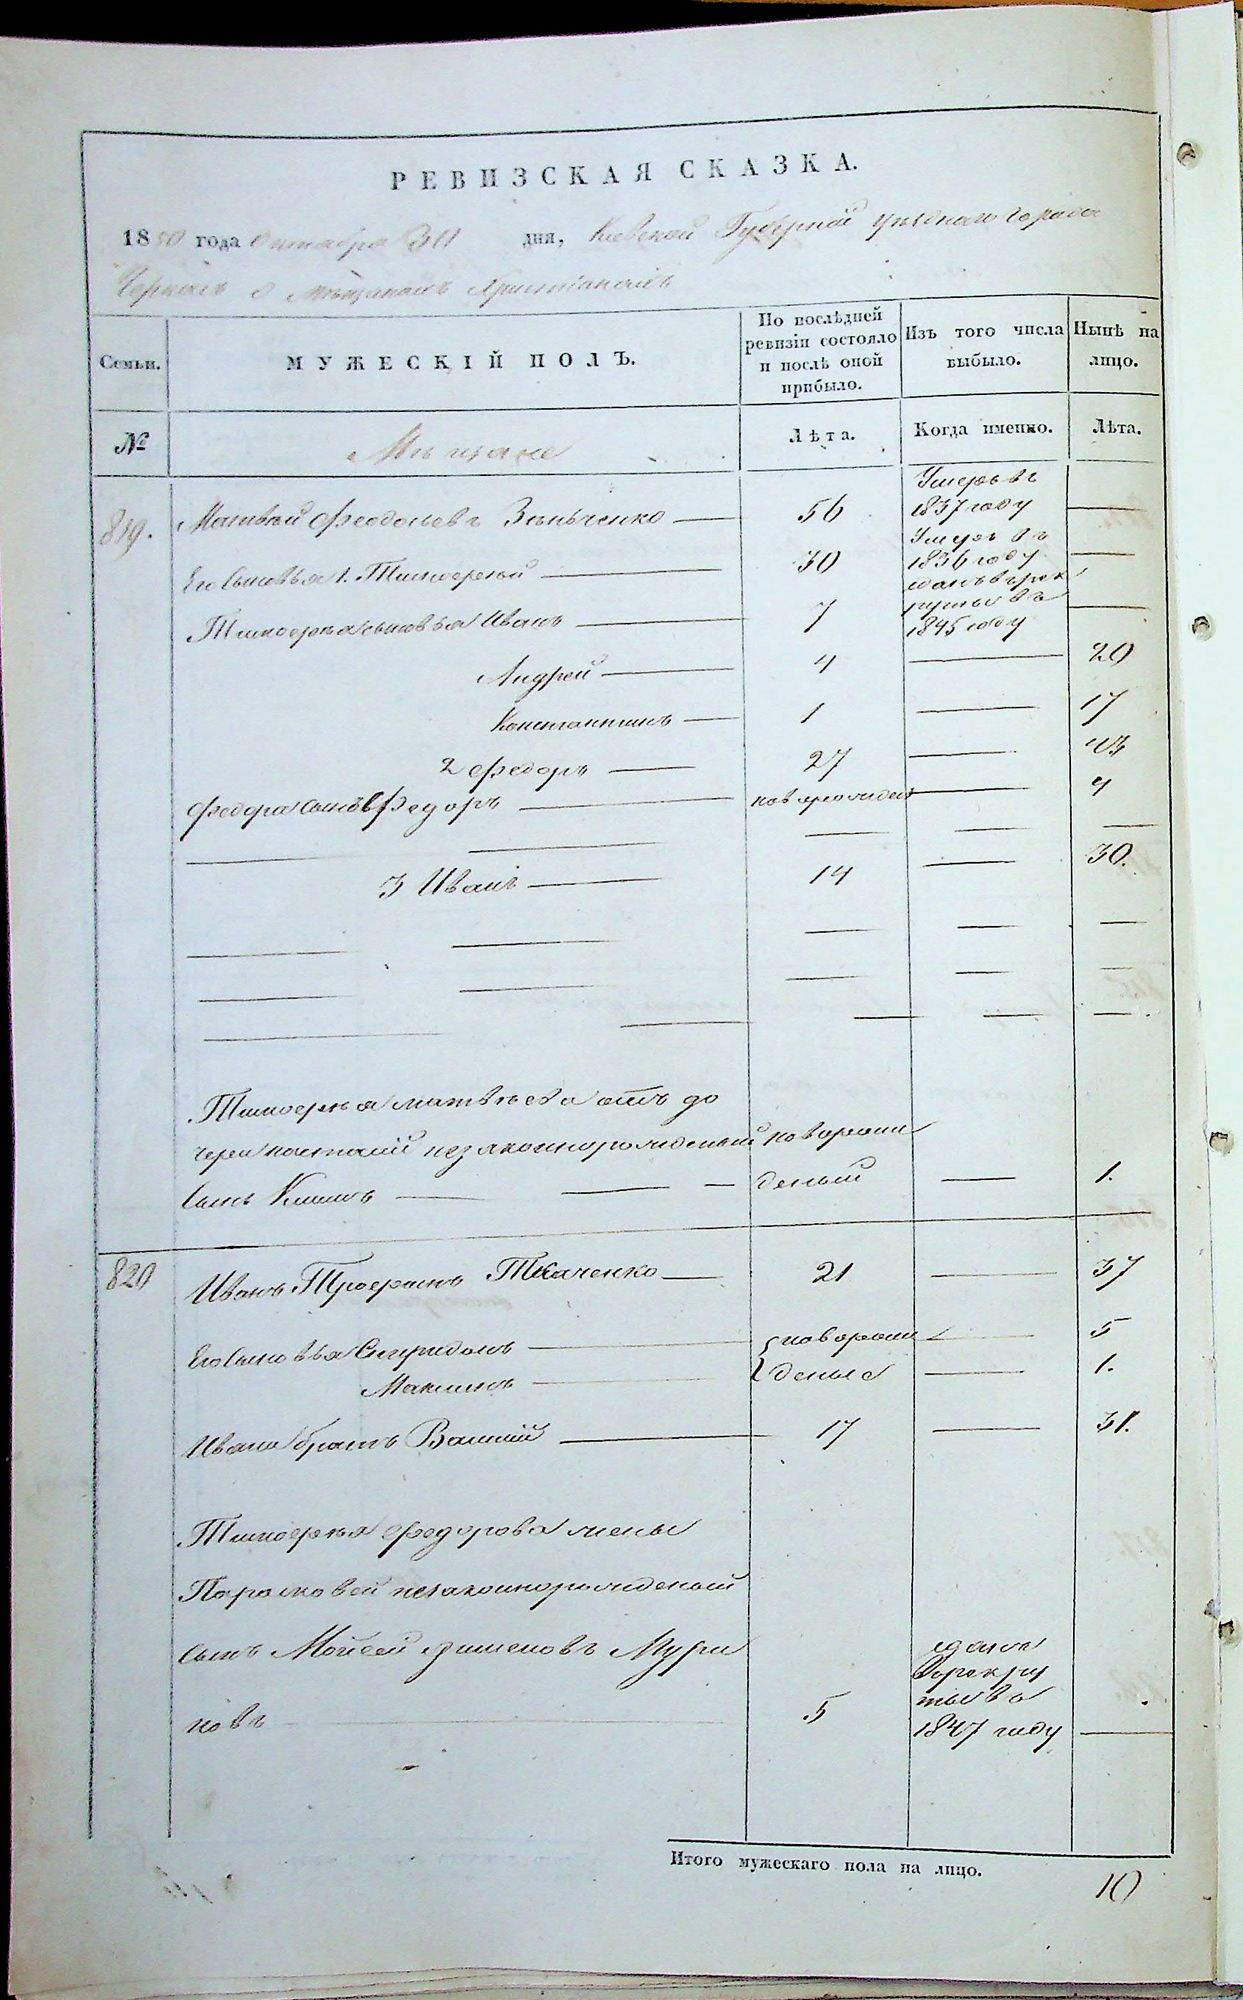 РЕВИЗСКАЯ СКАЗКА.
1850 года Октября 30 дня, Киевской Губернїи уѣзднаго города
Черкасъ о мѣщанахъ Христіанахъ
Семьи. МУЖЕСКІЙ ПОЛЪ. По послѣдней ревизіи состояло и послѣ оной прибыло. Изъ того числа выбыло. Нынѣ на лицо.
№ Мѣщане Лѣта. Когда именно. Лѣта.
819. Матвѣй Феодосьевъ Зѣньченко — 56 Умеръ въ 1837 году —
Его сыновья 1. Тимоѳѣй — 30 Умеръ въ 1836 году —
Тимоѳѣя сыновья Иванъ — 7 въ рекруты въ 1845 году —
Андрей — 4 — 20
Константинъ — 1 — 17
2 Федоръ — 27 — 43
Федора сынъ Федоръ — новорожден — 4
3 Иванъ — 14 — 30.
Тимоѳѣя Матвѣева отъ до
чери незаконнорожденый новорож
сынъ Климъ — деный — 1.
820 Иванъ Трофимъ Ткаченко — 21 — 37
Его сыновья Спиридонъ — новорож — 5
Максимъ — деные — 1.
Ивана братъ Василій — 17 — 31.
Тимоѳѣя Федорова жены
Парасковеи незаконнорожденый
сынъ Мойсей Мури
новъ — 5 въ рекруты въ 1847 году —
Итого мужескаго пола на лицо. 10